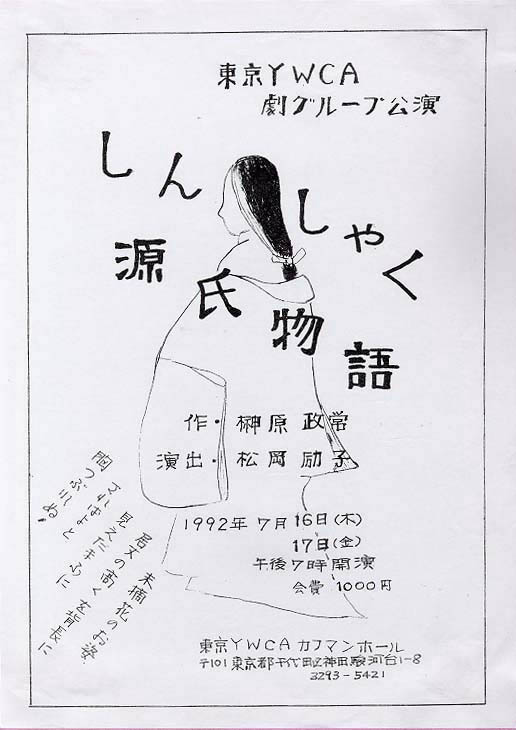 東京YWCA
劇グループ公演
しんしゃく
源氏物語
作・榊原政常
演出・松岡励子
1992年7月16日(木)
17日(金)
午後7時開演
会費 1000円
末摘花のお姿
居丈の高くを背長に
見えたまふに
さればよと
胸つぶれぬ。
東京YWCAカフマンホール
〒101東京都千代田区神田駿河台1-8
3293-5421